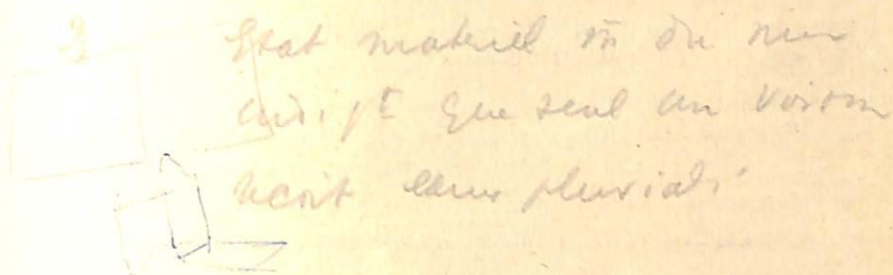 Etat matériel m du mur
que seul un voisin
reçoit eaux pluviale